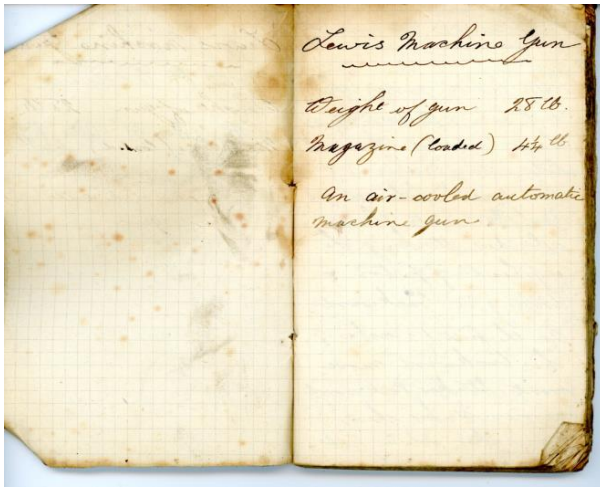 Lewis Machine Gun
Weight of gun 28 lb.
Magazine (loaded) 4¼ lb
An air-cooled automatic
machine gun.